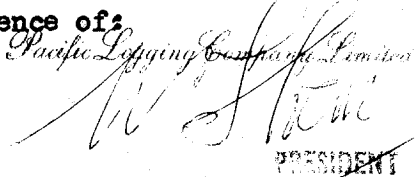 ence of:
Pacific Logging Company Limited
PRESIDENT